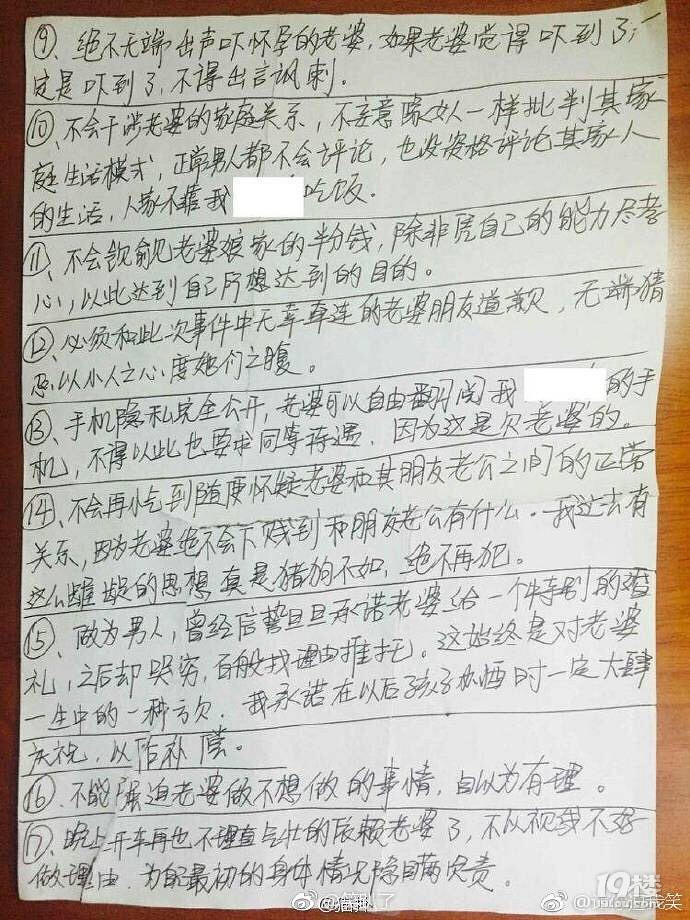 ⑨、绝不无端出声吓怀孕的老婆，如果老婆觉得吓到了，一
定是吓到了，不得出言讽刺。
⑩、不会干涉老婆的家庭关系，不妄意像女人一样批判其家
庭生活模式，正常男人都不会评论，也没资格评论其家人
的生活，人家不靠我 吃饭．
⑪、不会觊觎老婆娘家的半分钱，除非凭自己的能力尽孝
心，以此达到自己所想达到的目的。
⑫、必须和此次事件中无辜牵连的老婆朋友道歉，无端猜
忌以小人之心度她们之腹。
⑬、手机隐私完全公开，老婆可以自由翻阅我 的手
机，不得以此也要求同等待遇，因为这是欠老婆的。
⑭、不会再小吃到随便怀疑老婆和其朋友老公之间的正常
关系，因为老婆绝不会下贱到和朋友老公有什么．我过去有
这么龌龊的思想真是猪狗不如，绝不再犯。
⑮、做为男人，曾经信誓旦旦承诺老婆给一个特别的婚
礼，之后却哭穷，百般找理由推托。这始终是对老婆
一生中的一种亏欠．我承诺在以后孩子办酒时一定大肆
庆祝，以作补偿。
⑯、不能强迫老婆做不想做的事情，自以为有理。
⑰、晚上开车再也不理直气壮的依赖老婆了，不以视线不好
做理由．为自己最初的身体情况隐瞒负责。
19楼